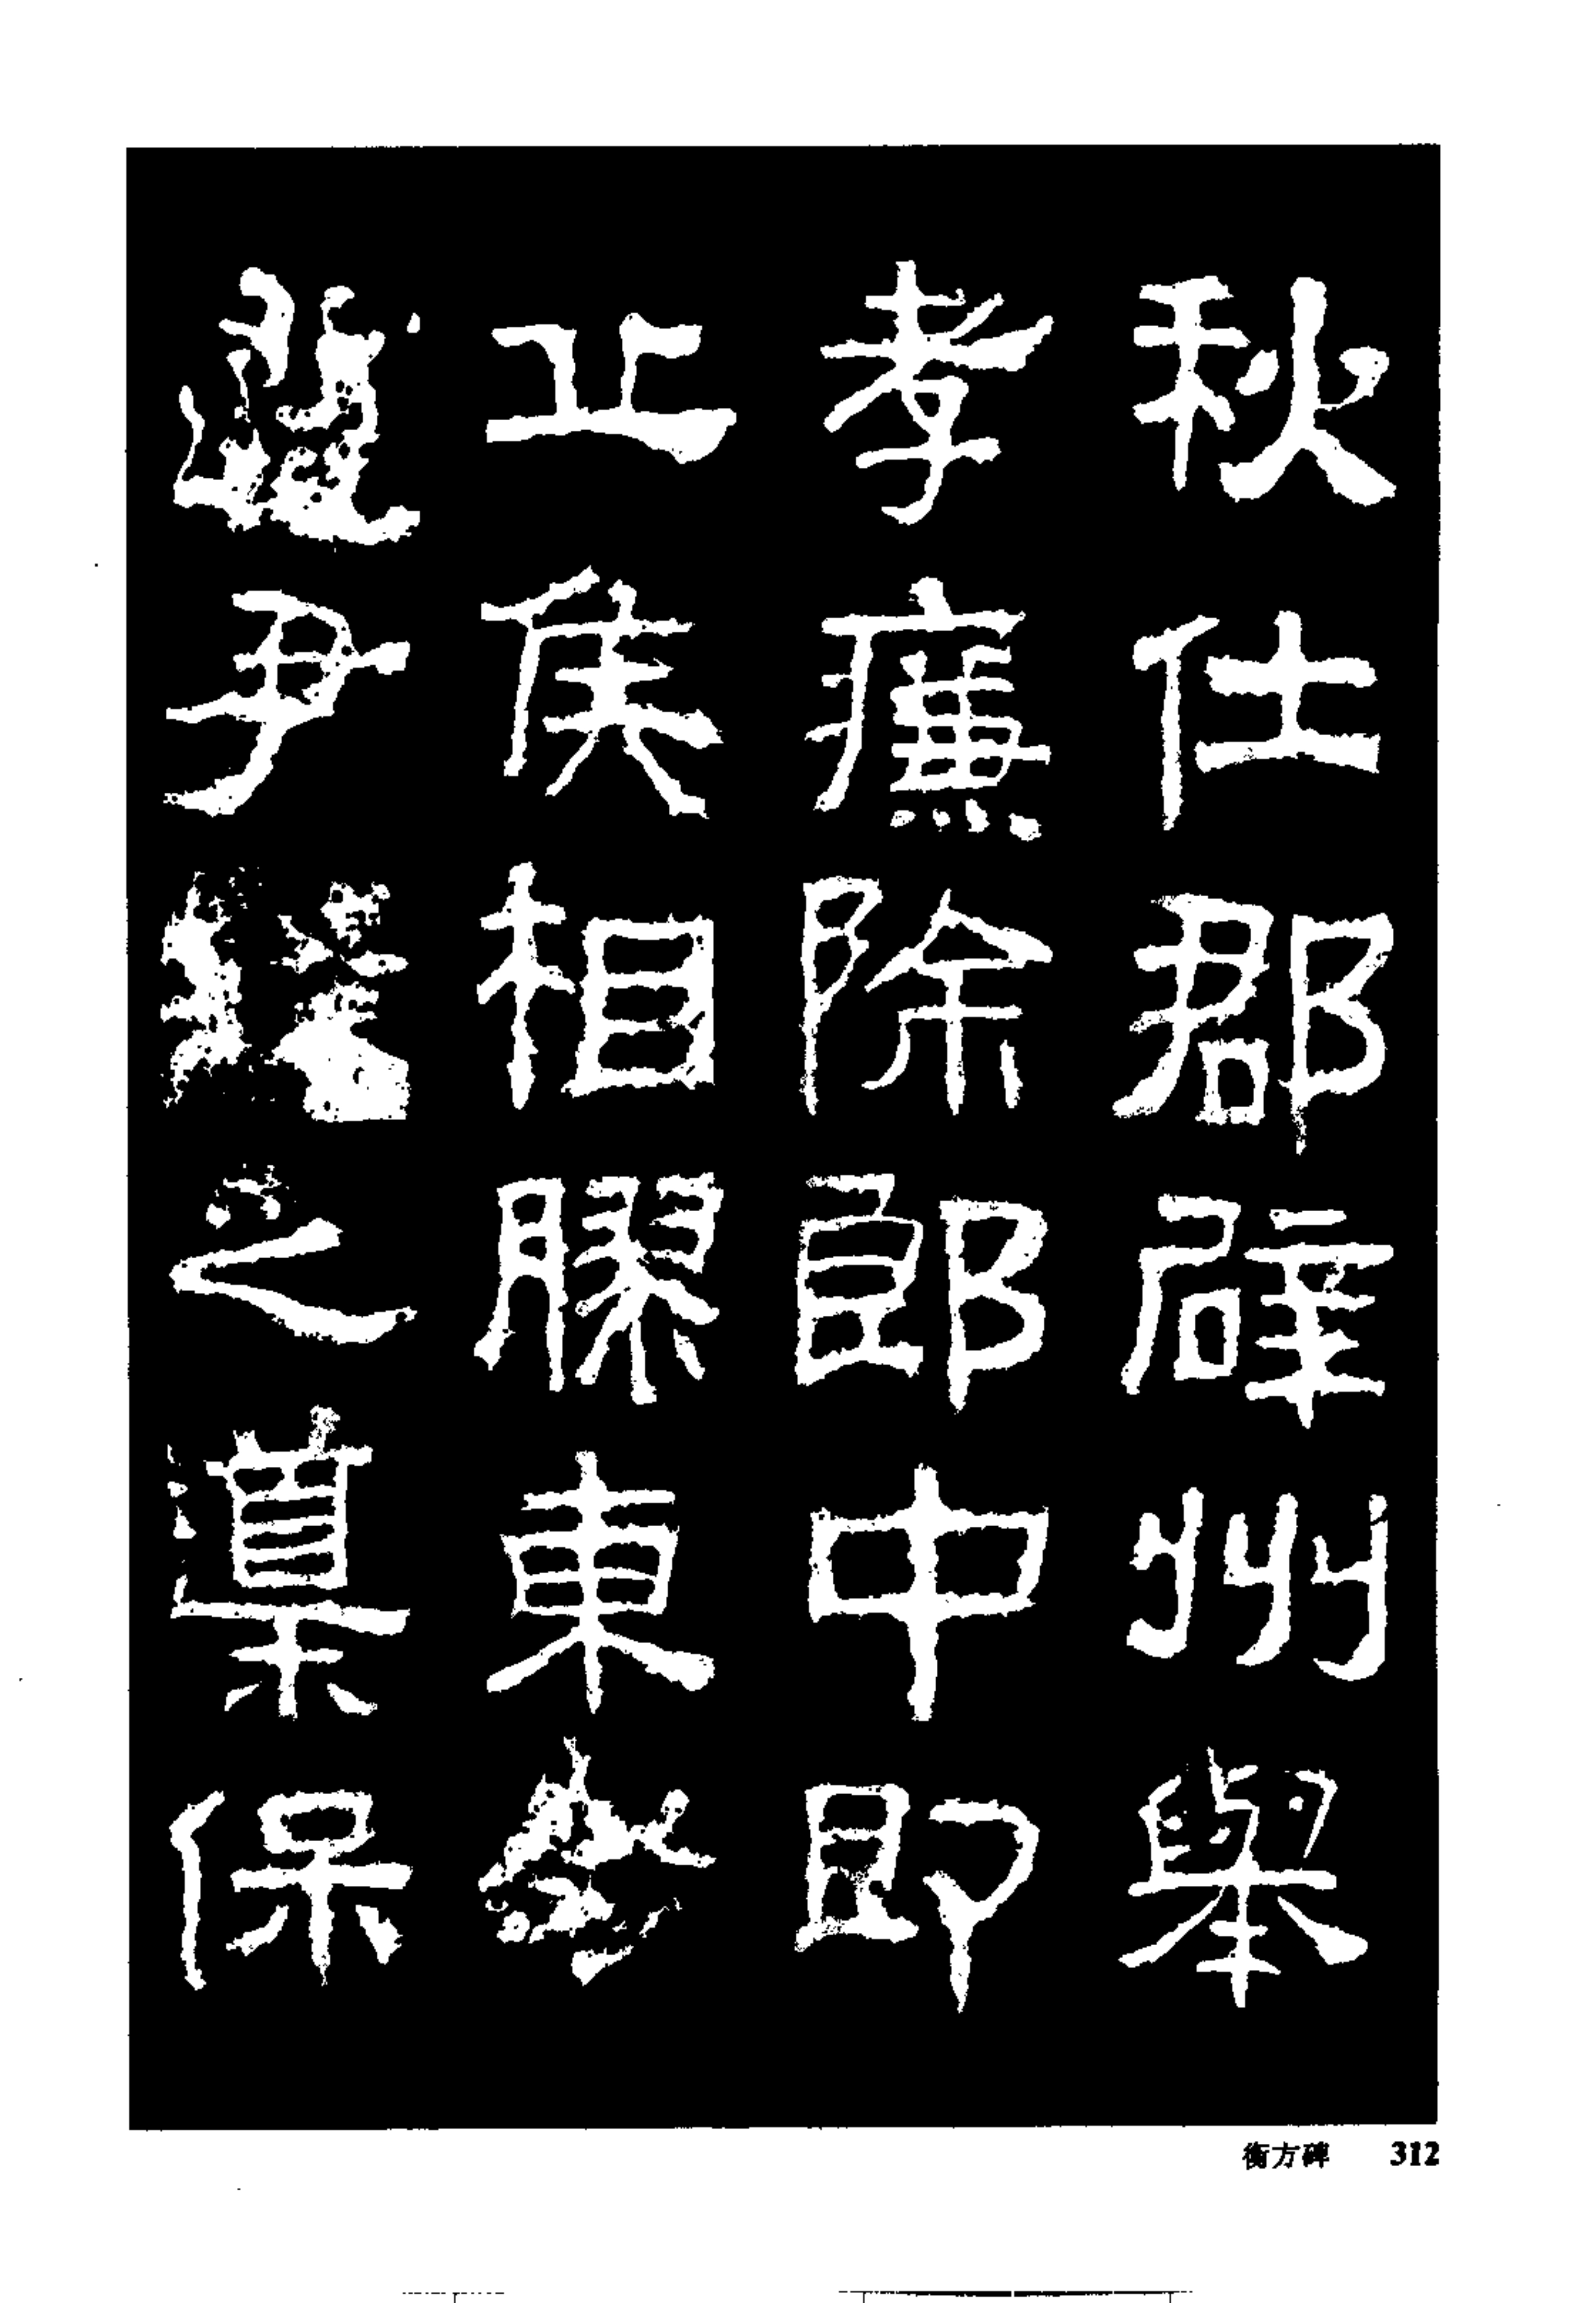 秋仕郡辟州舉
孝廉除郎中即
丘侯相膠東令
遵尹鐸之導保
衡方碑 312